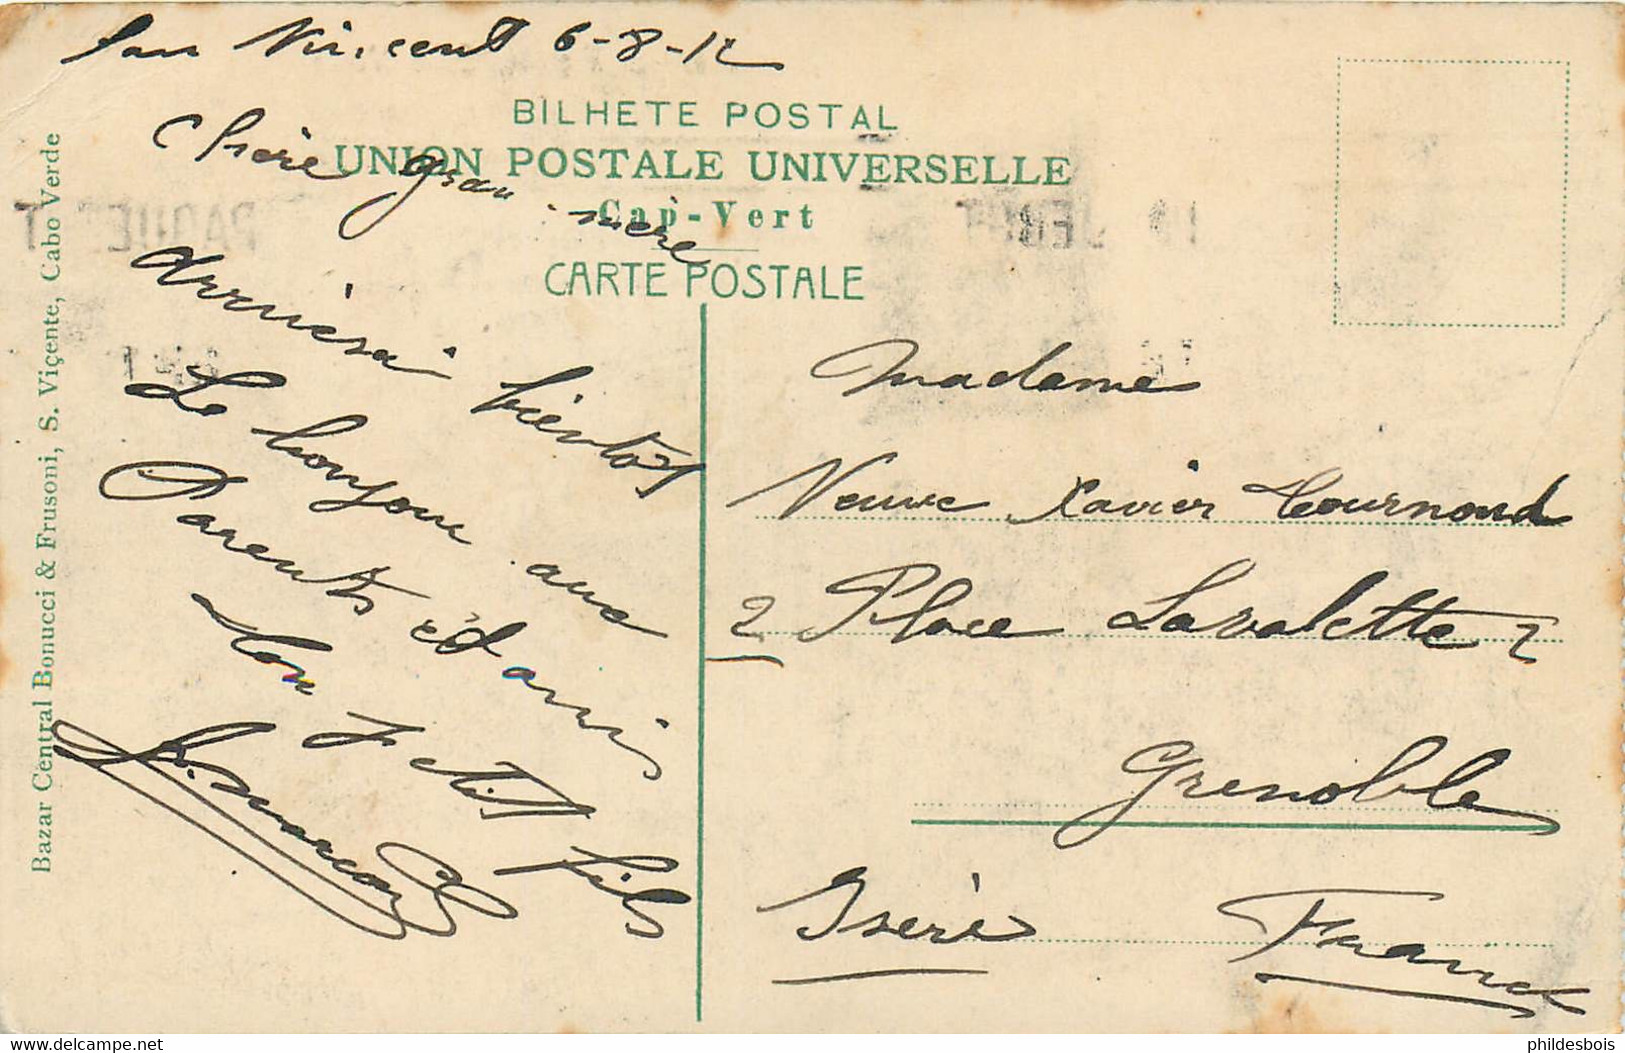 San Vincent 6-8-12
BILHETE POSTAL
UNION POSTALE UNIVERSELLE
Cap-Vert
CARTE POSTALE
Chère gran-mère
arriverai bientôt
Le bonjour aux
Parents et amis
Ton petit fils
Bazar Central Bonucci & Frusoni, S. Viçente, Cabo Verde
PAQUEBOT
Madame
Veuve Xavier Tournoud
2 Place Lavalette 2
Grenoble
Isère France
phildesbois